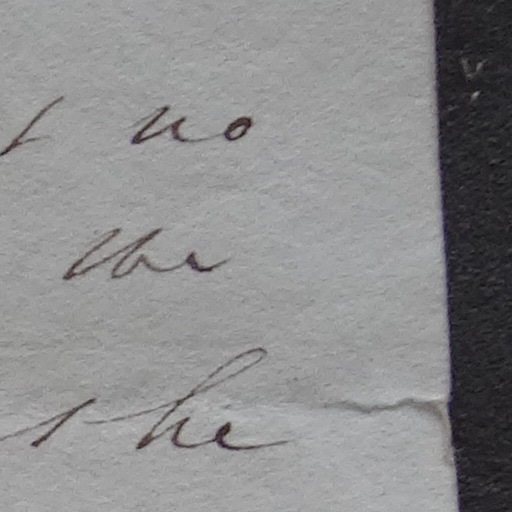 no
the
he